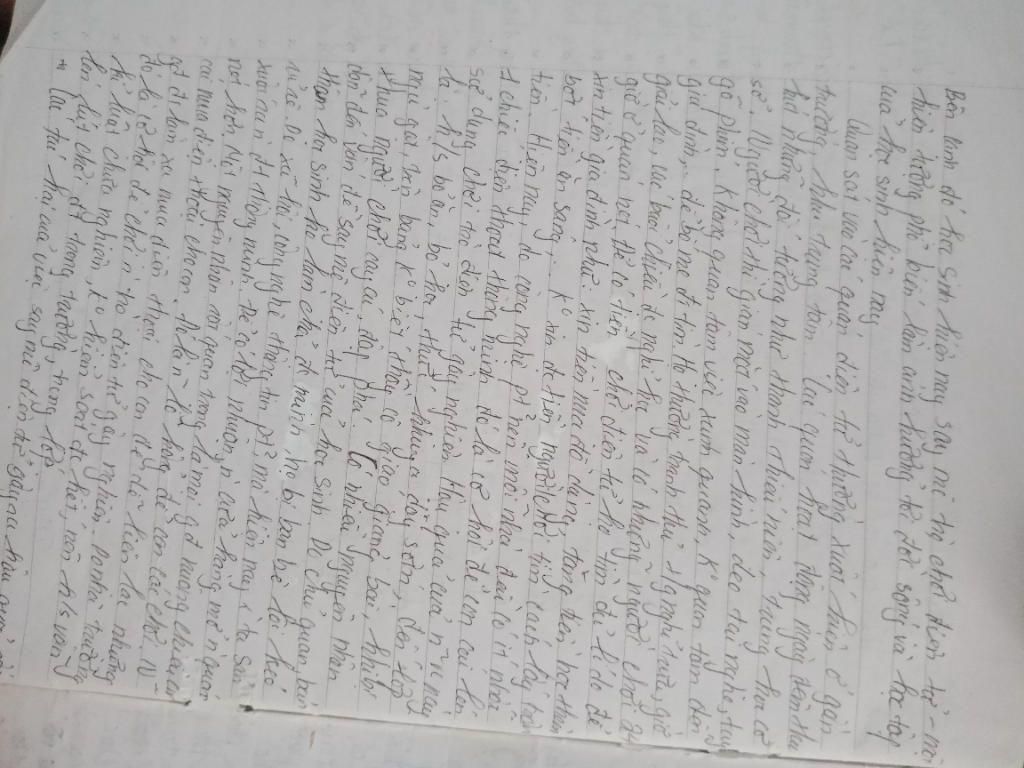 Bên cạnh đó học sinh hiện nay say mê trò chơi điện tử - một
hiện tượng phổ biến làm ảnh hưởng tới đời sống và học tập
của học sinh hiện nay
Quan sát các quán điện tử thường xuất hiện ở gần
trường, khu trung tâm quan hoạt động ngày đêm thu
hút những đối tượng như thanh thiếu niên, trung học cơ
sở. Người chơi thì gián mắt vào màn hình, đeo tai nghe, tay
gõ phím, không quan tâm việc xung quanh, k° quan tâm đến
gia đình, để bố mẹ đi tìm Họ thường tranh thủ nghỉ trưa, giờ
giải lao, và buổi chiều đc nghỉ học và có những người chơi
giờ ở quán net để có điện chơi điện tử họ tìm đủ lí do để
xin tiền gia đình như xin tiền mua đồ dùng, tăng tiền học thêm
bớt tiền ăn sáng. k° xin đc tiền người chơi tìm cách lấy trộm
tiền. Hiện nay, do công nghệ pt nên mỗi nhà đều có ít nhất
1 chiếc điện thoại thông minh đó là cơ hội để con cái lén
sử dụng chơi trò điện tử gây nghiện Hậu quả của nó
là h/s bỏ ăn, bỏ học, thức khuya dậy sớm, đến lớp
ngủ gật, ghi bảng k° biết thầy cô giáo giảng bài, khi bị
thua người chơi cay cú, đập phá. Có nhiều nguyên nhân
dẫn đến vấn đề say mê điện tử của học sinh Do chủ quan, bản
thân học sinh k° làm chủ đc mình, do bị bạn bè lôi kéo
xã hội, công nghệ thông tin pt mà hiện nay x ta sản
xuất các đt thông minh để có lợi nhuận, các cửa hàng mở quán
net kiếm Một nguyên nhân cũng quan trọng là mỗi gđ nuông chiều con
cái mua điện thoại cho con Nhẫn lỗ hổng để con cái chơi
gđ đi làm xa mua điện thoại cho con để dễ liên lạc nhưng
đó là cơ hội để chơi trò điện tử gây nghiện. Do nhà trường
kỉ luật chưa nghiêm, k° kiểm soát đc hết, vẫn h/s vẫn
lén lút chơi đt trong trường, trong lớp
tác hại của việc say mê điện tử gây ra hậu quả